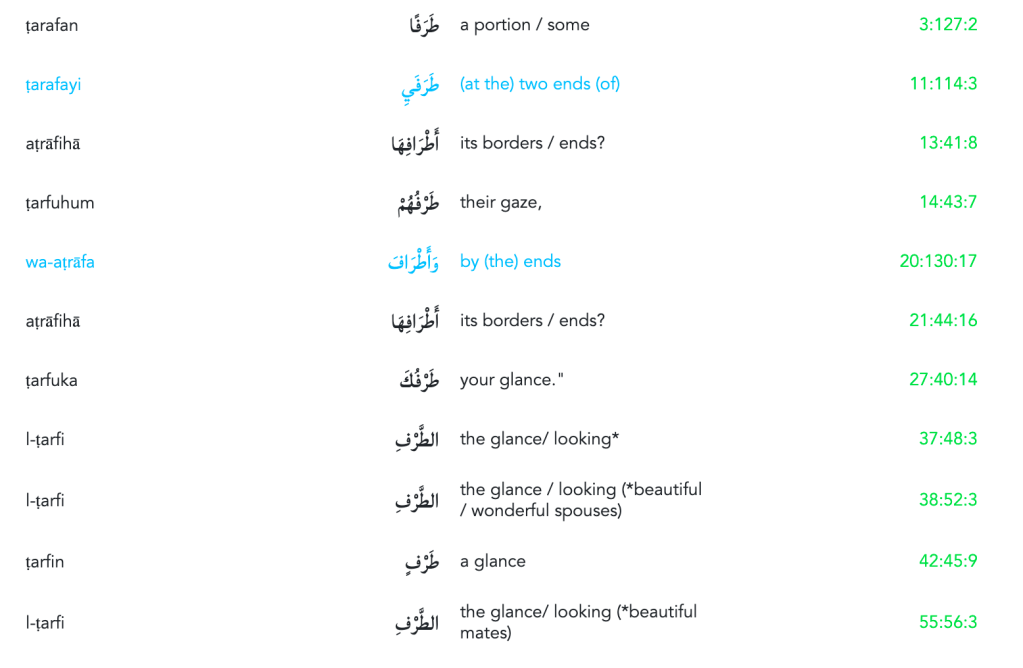 ṭarafan طَرَفًا a portion / some 3:127:2
ṭarafayi طَرَفَيِ (at the) two ends (of) 11:114:3
aṭrāfihā أَطْرَافِهَا its borders / ends? 13:41:8
ṭarfuhum طَرْفُهُمْ their gaze, 14:43:7
wa-aṭrāfa وَأَطْرَافَ by (the) ends 20:130:17
aṭrāfihā أَطْرَافِهَا its borders / ends? 21:44:16
ṭarfuka طَرْفُكَ your glance." 27:40:14
l-ṭarfi الطَّرْفِ the glance/ looking* 37:48:3
l-ṭarfi الطَّرْفِ the glance / looking (*beautiful
/ wonderful spouses) 38:52:3
ṭarfin طَرْفٍ a glance 42:45:9
l-ṭarfi الطَّرْفِ the glance/ looking (*beautiful
mates) 55:56:3